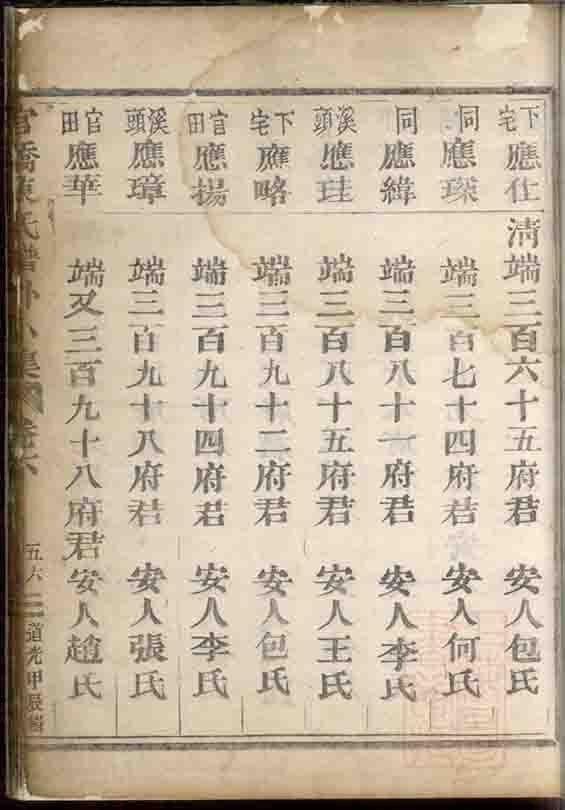 下宅 應仕 清端三百六十五府君 安人包氏
同 應琛 端三百七十四府君 安人何氏
同 應緯 端三百八十一府君 安人李氏
溪頭 應珪 端三百八十五府君 安人王氏
下宅 應略 端三百九十二府君 安人包氏
官田 應揚 端三百九十四府君 安人李氏
溪頭 應璋 端三百九十八府君 安人張氏
官田 應華 端又三百九十八府君 安人趙氏
氏譜 六 五六 道光甲辰